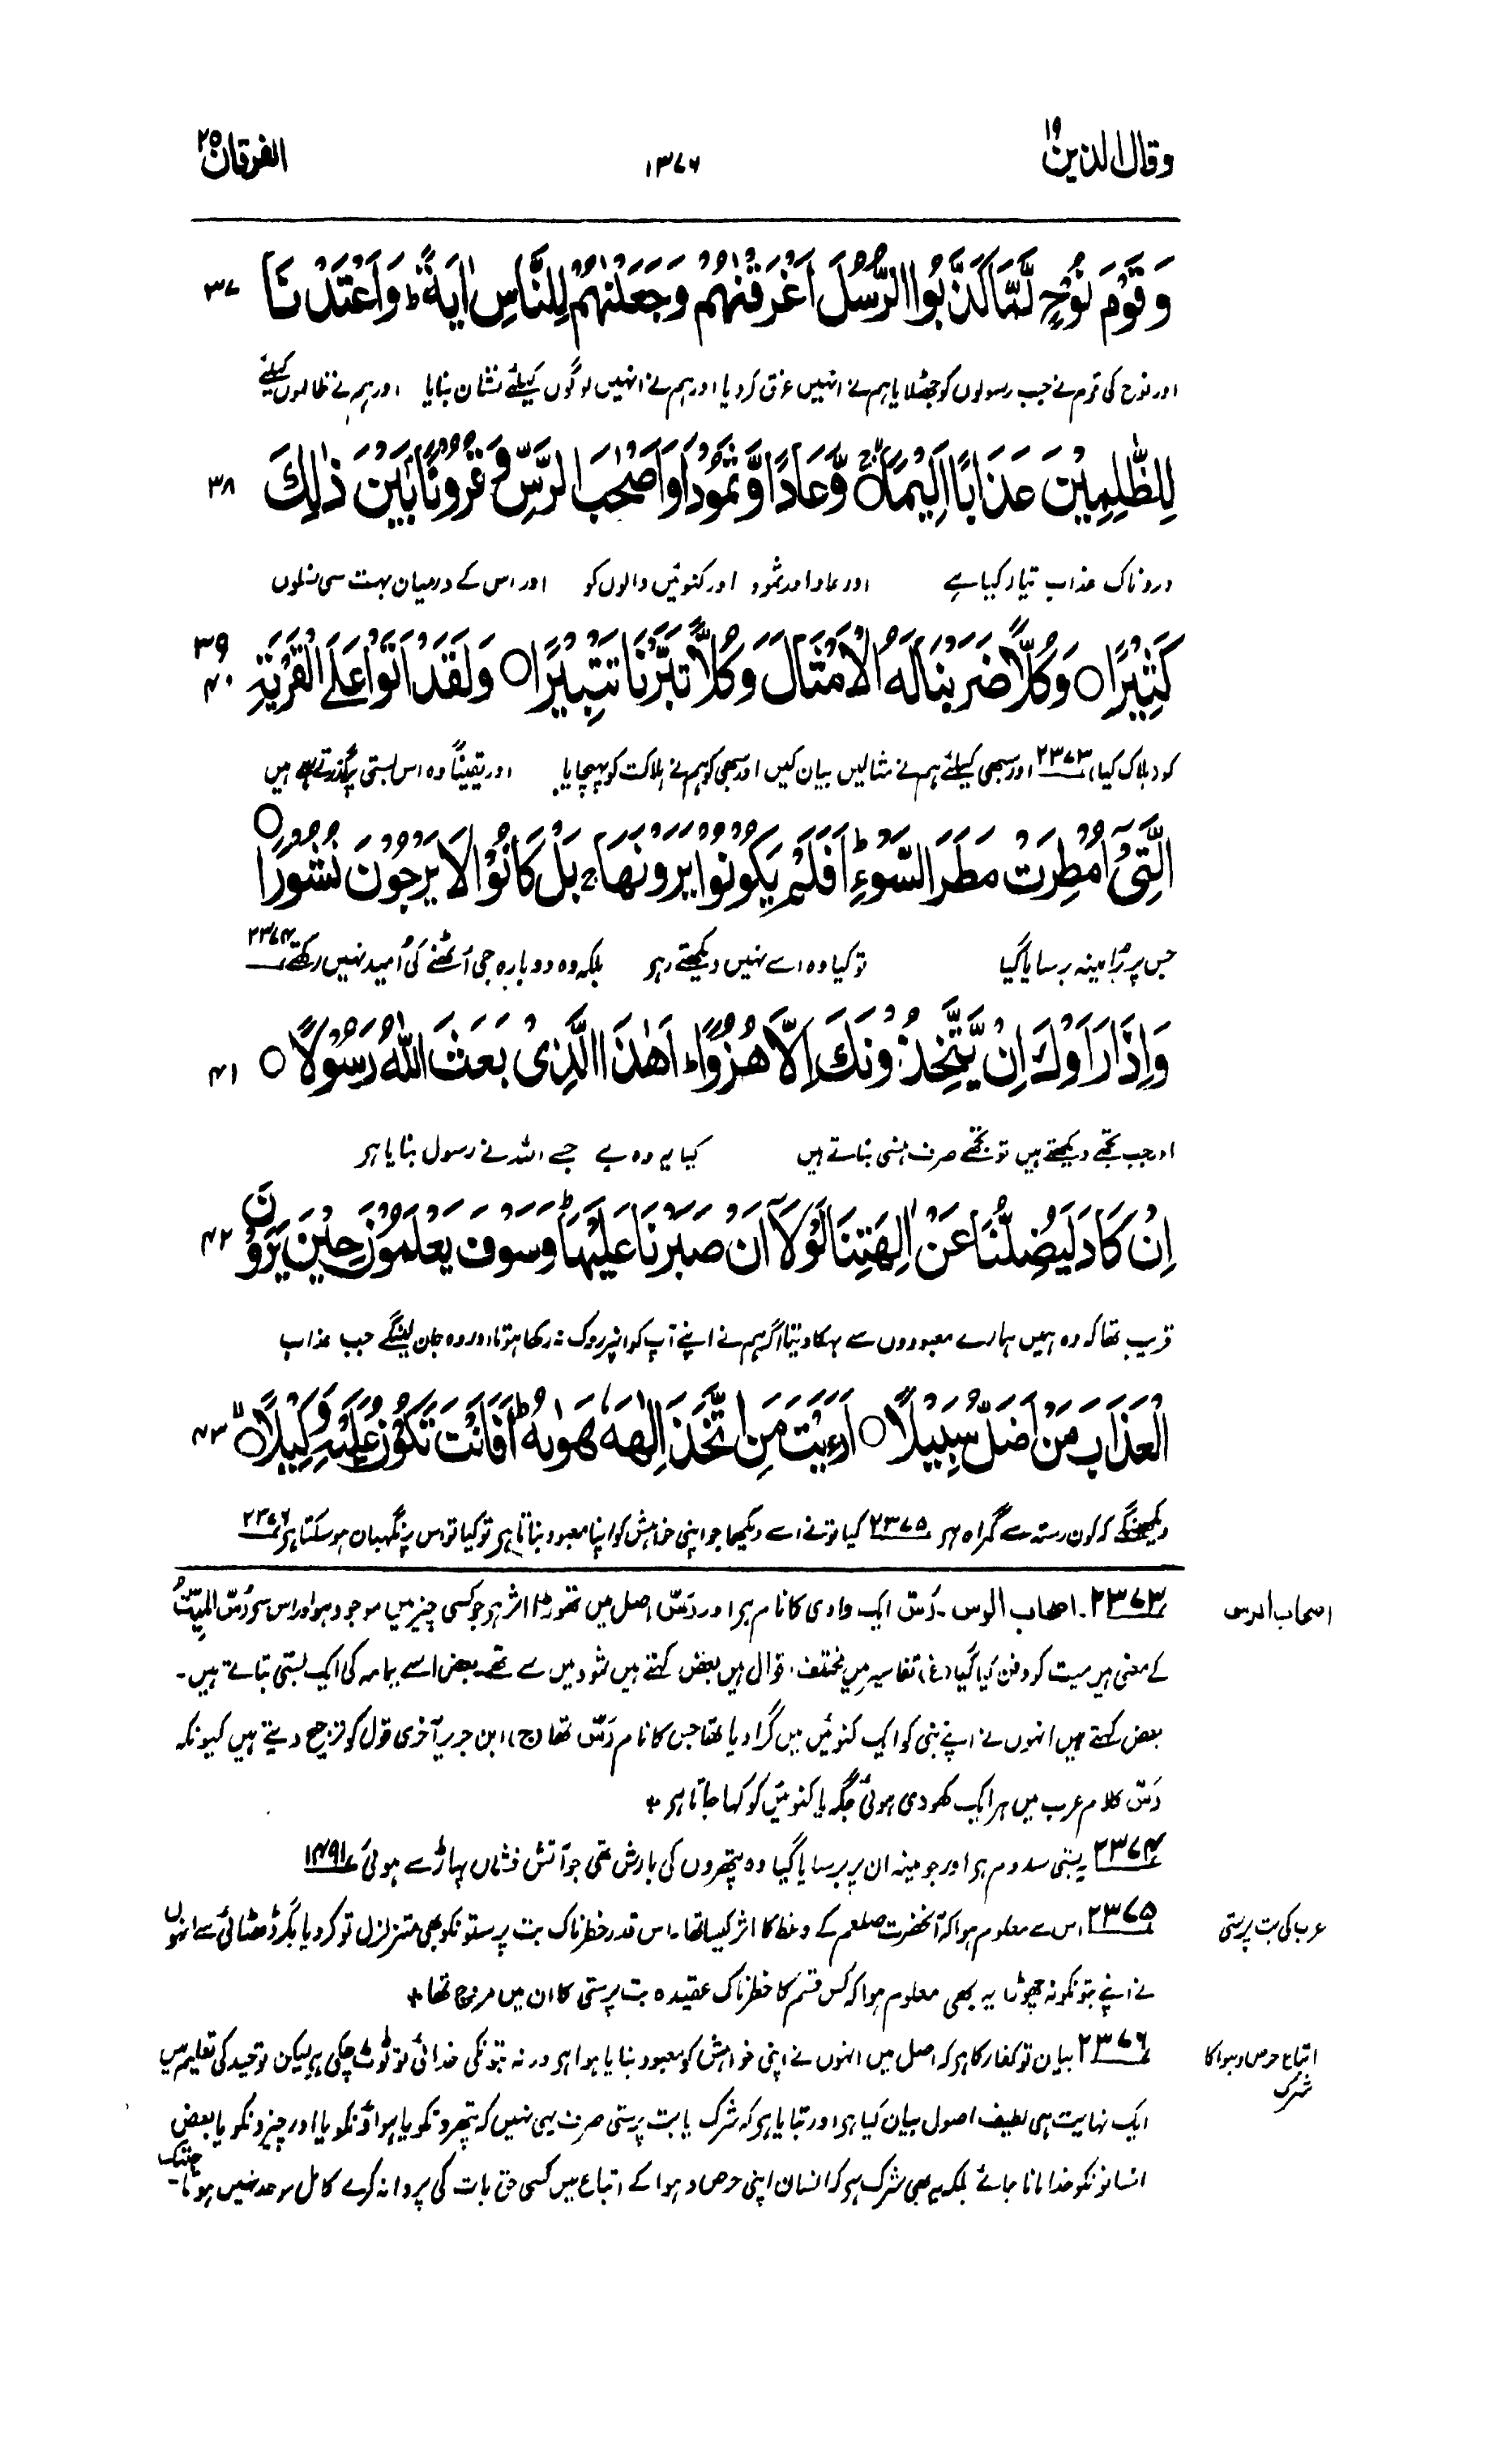 وقال الذین ۱۹
۱۳۷۶
الفرقان ۲۵
وَ قَوْمَ نُوْحٍ لَّمَّا كَذَّبُوا الرُّسُلَ اَغْرَقْنٰهُمْ وَجَعَلْنٰهُمْ لِلنَّاسِ اٰيَةً ؕ وَاَعْتَدْنَا ۳۷
اور نوح کی قوم نے جب رسولوں کو جھٹلایا ہم نے انہیں غرق کر دیا اور ہم نے انہیں لوگوں کیلئے نشان بنایا اور ہم نے ظالموں کیلئے
لِلظّٰلِمِيْنَ عَذَابًا اَلِيْمًا ۝ وَّعَادًا وَّثَمُوْدَا۟ وَاَصْحٰبَ الرَّسِّ وَ قُرُوْنًۢا بَيْنَ ذٰلِكَ ۳۸
دردناک عذاب تیار کیا ہے اور عاد اور ثمود اور کنوئیں والوں کو اور اس کے درمیان بہت سی نسلوں
كَثِيْرًا ۝ وَكُلًّا ضَرَبْنَا لَهُ الْاَمْثَالَ وَكُلًّا تَبَّرْنَا تَتْبِيْرًا ۝ وَلَقَدْ اَتَوْا عَلَى الْقَرْيَةِ ۳۹ ۴۰
کو (ہلاک کیا) ۲۳۷۳ اور سبھی کیلئے ہم نے مثالیں بیان کیں اور سبھی کو ہم نے ہلاکت کو پہنچایا۔ اور یقیناً وہ اس بستی پر گذرتے رہے ہیں
الَّتِيْۤ اُمْطِرَتْ مَطَرَ السَّوْءِ ؕ اَفَلَمْ يَكُوْنُوْا يَرَوْنَهَا ۚ بَلْ كَانُوْا لَا يَرْجُوْنَ نُشُوْرًا ۝
جس پر بُرا مینہ برسایا گیا تو کیا وہ اسے نہیں دیکھتے رہے بلکہ وہ دوبارہ جی اُٹھنے کی اُمید نہیں رکھتے ۲۳۷۴
وَاِذَا رَاَوْكَ اِنْ يَّتَّخِذُوْنَكَ اِلَّا هُزُوًا ؕ اَهٰذَا الَّذِيْ بَعَثَ اللّٰهُ رَسُوْلًا ۝ ۴۱
اور جب تجھے دیکھتے ہیں تو تجھے صرف ہنسی بناتے ہیں کیا یہ وہ ہے جسے اللہ نے رسول بنایا ہے
اِنْ كَادَ لَيُضِلُّنَا عَنْ اٰلِهَتِنَا لَوْلَاۤ اَنْ صَبَرْنَا عَلَيْهَا ؕ وَسَوْفَ يَعْلَمُوْنَ حِيْنَ يَرَوْنَ ۴۲
قریب تھا کہ وہ ہمیں ہمارے معبودوں سے بہکا دیتا اگر ہم نے اپنے آپ کو انپر روک نہ رکھا ہوتا اور وہ جان لینگے جب عذاب
الْعَذَابَ مَنْ اَضَلُّ سَبِيْلًا ۝ اَرَءَيْتَ مَنِ اتَّخَذَ اِلٰهَهٗ هَوٰىهُ ؕ اَفَاَنْتَ تَكُوْنُ عَلَيْهِ وَكِيْلًا ۝ ۴۳
دیکھینگے کہ کون رستہ سے گمراہ ہے ۲۳۷۵ کیا تو نے اسے دیکھا جو اپنی خواہش کو اپنا معبود بناتا ہے تو کیا تو اس پر نگہبان ہو سکتا ہے ۲۳۷۶
اصحاب الرس
۲۳۷۳۔ اصحاب الرس۔ رَسّ ایک وادی کا نام ہے اور رَسّ اصل میں تھوڑا اثر ہے جو کسی چیز میں موجود ہو اور اس سے رُسَّ المَیِّتُ
کے معنی ہیں میت کو دفن کیا گیا (غ) تفاسیر میں مختلف اقوال ہیں بعض کہتے ہیں ثمود میں سے تھے۔ بعض اسے یمامہ کی ایک بستی بتاتے ہیں۔
بعض کہتے ہیں انہوں نے اپنے نبی کو ایک کنوئیں میں گرا دیا تھا جس کا نام رَسّ تھا (ج) ابن جریر آخری قول کو ترجیح دیتے ہیں کیونکہ
رَسّ کلام عرب میں ہر ایک کھودی ہوئی جگہ یا کنوئیں کو کہا جاتا ہے ٭
۲۳۷۴ یہ بستی سدوم ہے اور جو مینہ ان پر برسایا گیا وہ پتھروں کی بارش تھی جو آتش فشاں پہاڑ سے ہوئی ۱۴۹۱
عرب کی بت پرستی
۲۳۷۵ اس سے معلوم ہوا کہ آنحضرت صلعم کے وعظ کا اثر کیسا تھا۔ اس قدر خطرناک بت پرستونکو بھی متزلزل تو کر دیا مگر ڈھٹائی سے انہوں
نے اپنے بتونکو نہ چھوڑا یہ بھی معلوم ہوا کہ کس قسم کا خطرناک عقیدہ بت پرستی کا ان میں مروج تھا ٭
اتباع حرص و ہوا کا شرک
۲۳۷۶ بیان تو کفار کا ہے کہ اصل میں انہوں نے اپنی خواہش کو معبود بنایا ہوا ہے ورنہ بتونکی خدائی تو ٹوٹ چکی ہے لیکن توحید کی تعلیم میں
ایک نہایت ہی لطیف اصول بیان کیا ہے اور بتایا ہے کہ شرک یا بت پرستی صرف یہی نہیں کہ پتھرونکو یا ہواؤنکو یا اور چیزونکو یا بعض
انسانونکو خدا مانا جائے بلکہ یہ بھی شرک ہے کہ انسان اپنی حرص و ہوا کے اتباع میں کسی حق بات کی پروا نہ کرے کامل موحد نہیں ہوتا۔ جبتک